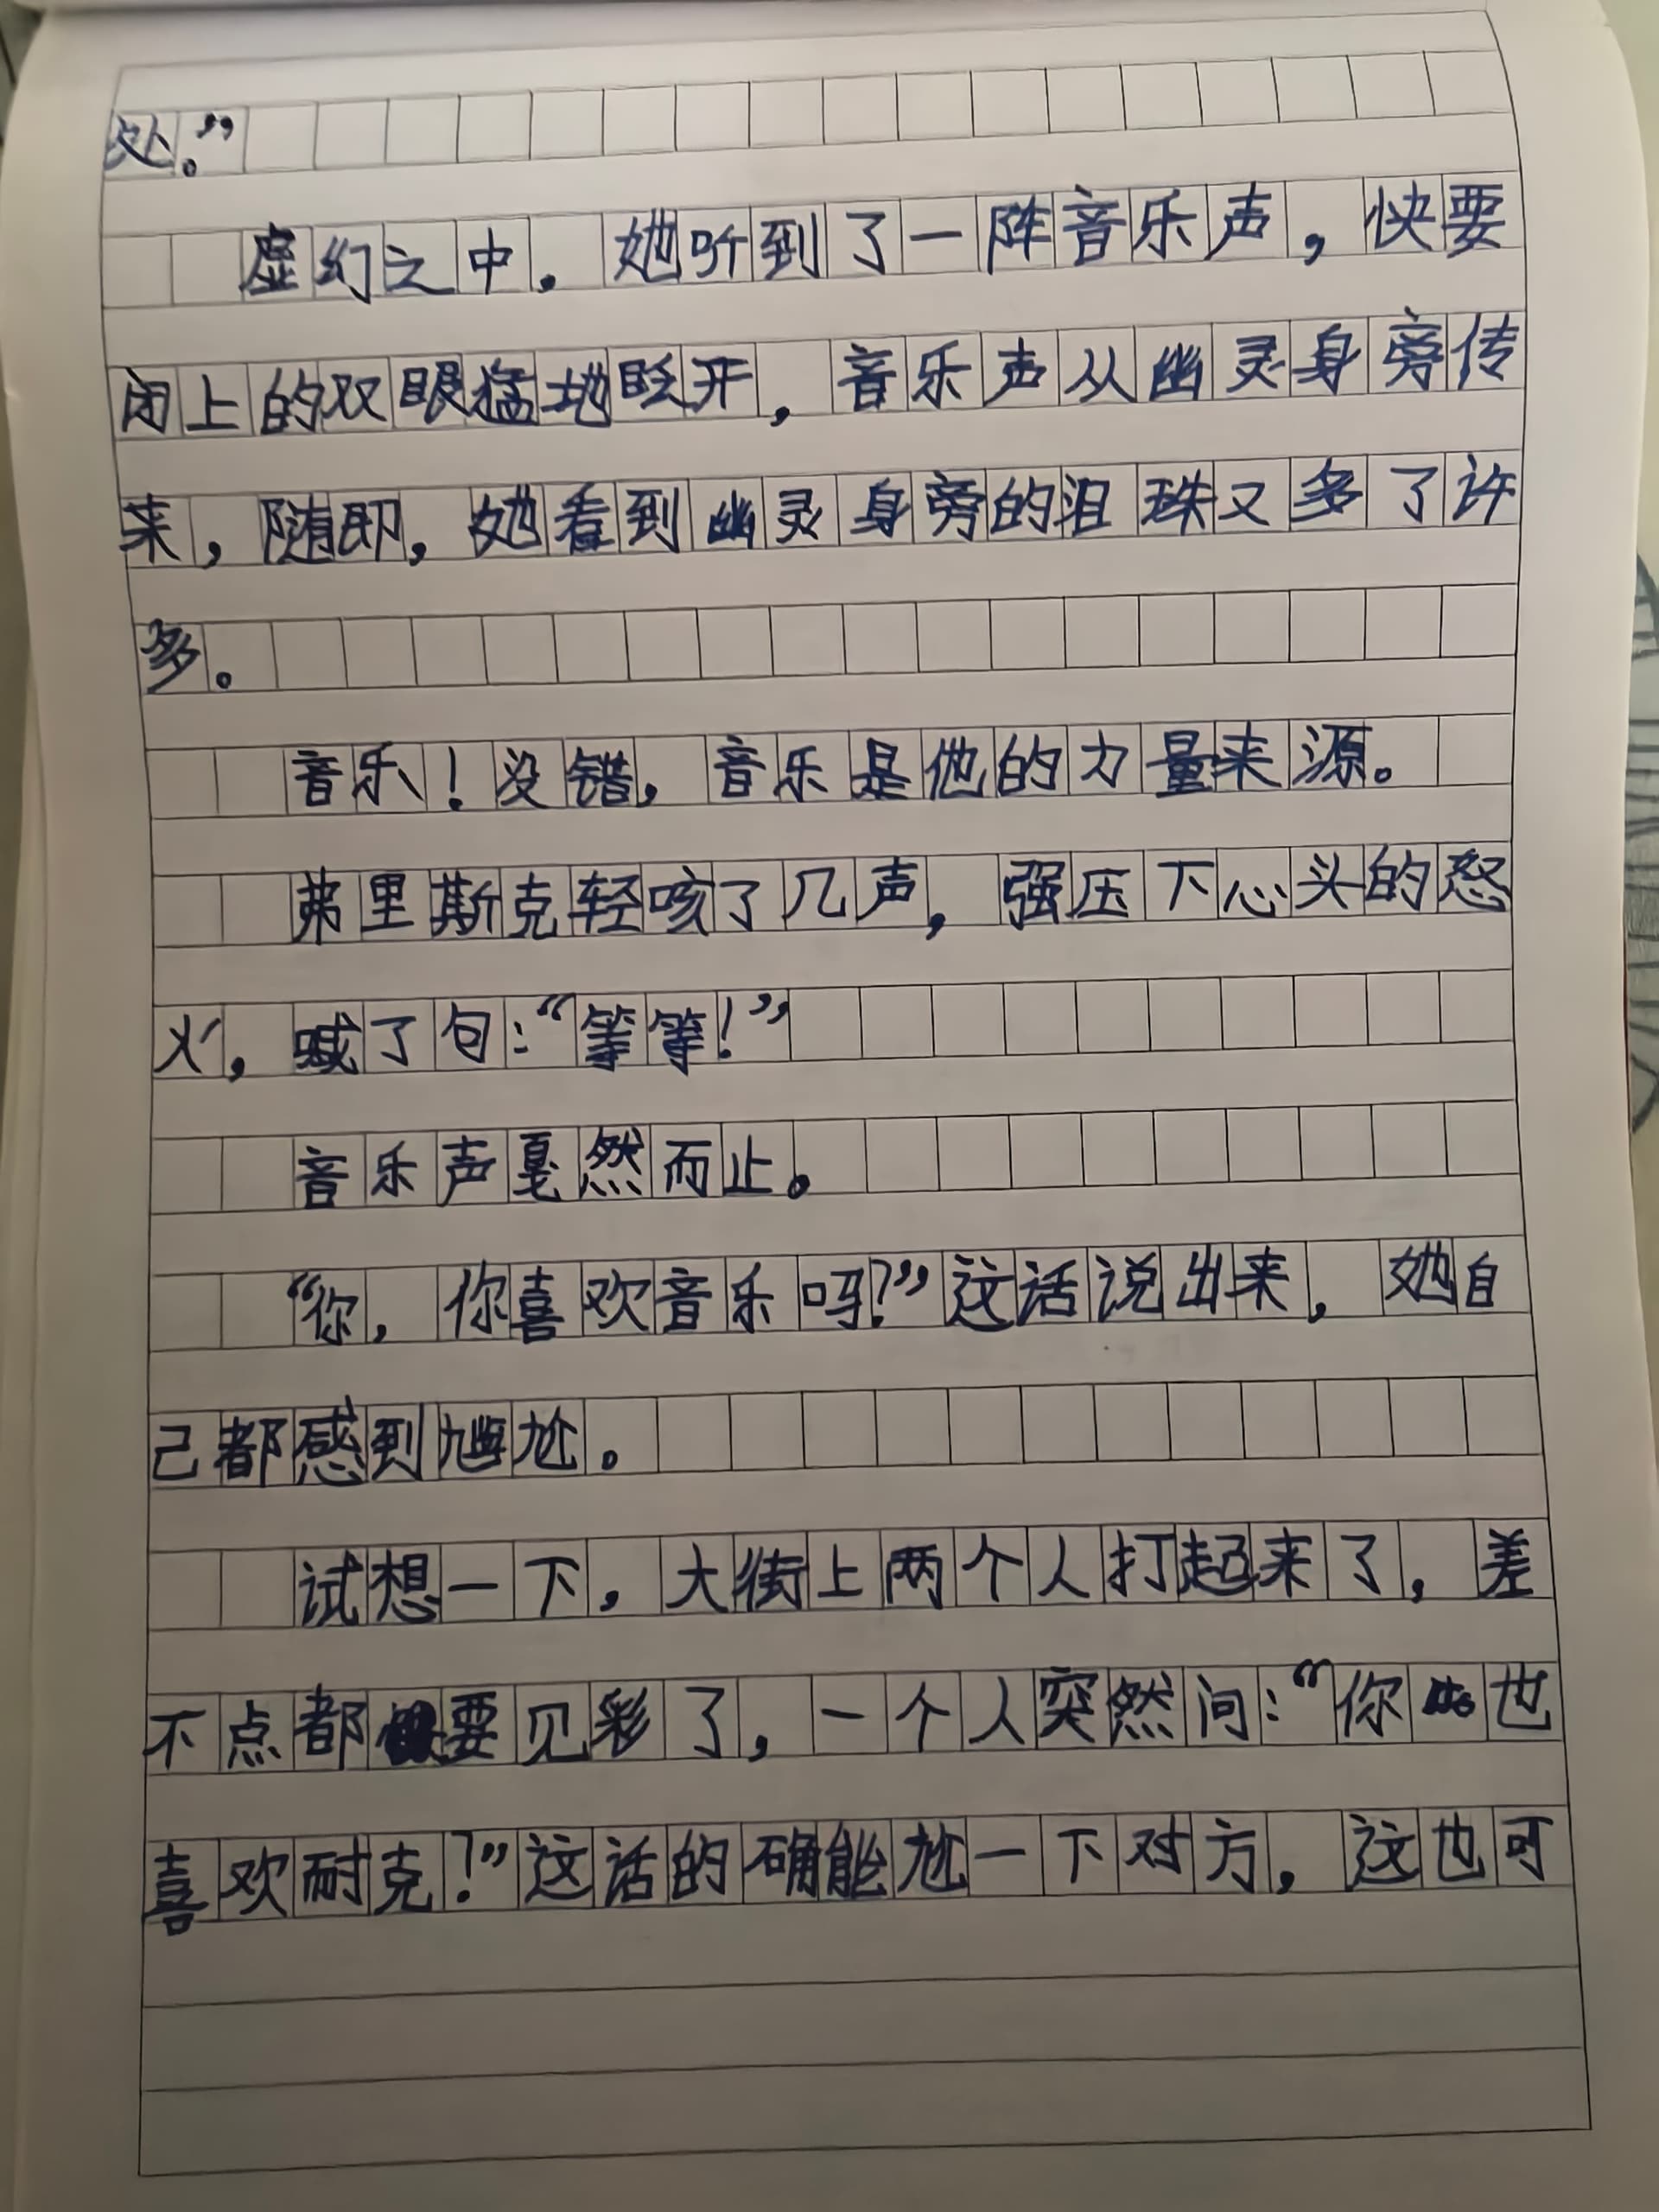 处。”
虚幻之中，她听到了一阵音乐声，快要
闭上的双眼猛地眨开，音乐声从幽灵身旁传
来，随即，她看到幽灵身旁的泪珠又多了许
多。
音乐！没错，音乐是他的力量来源。
弗里斯克轻咳了几声，强压下心头的怒
火，喊了句：“等等！”
音乐声戛然而止。
“你，你喜欢音乐吗？”这话说出来，她自
己都感到尴尬。
试想一下，大街上两个人打起来了，差
不点都要见彩了，一个人突然问：“你也
喜欢耐克？”这话的确能尬一下对方，这也可